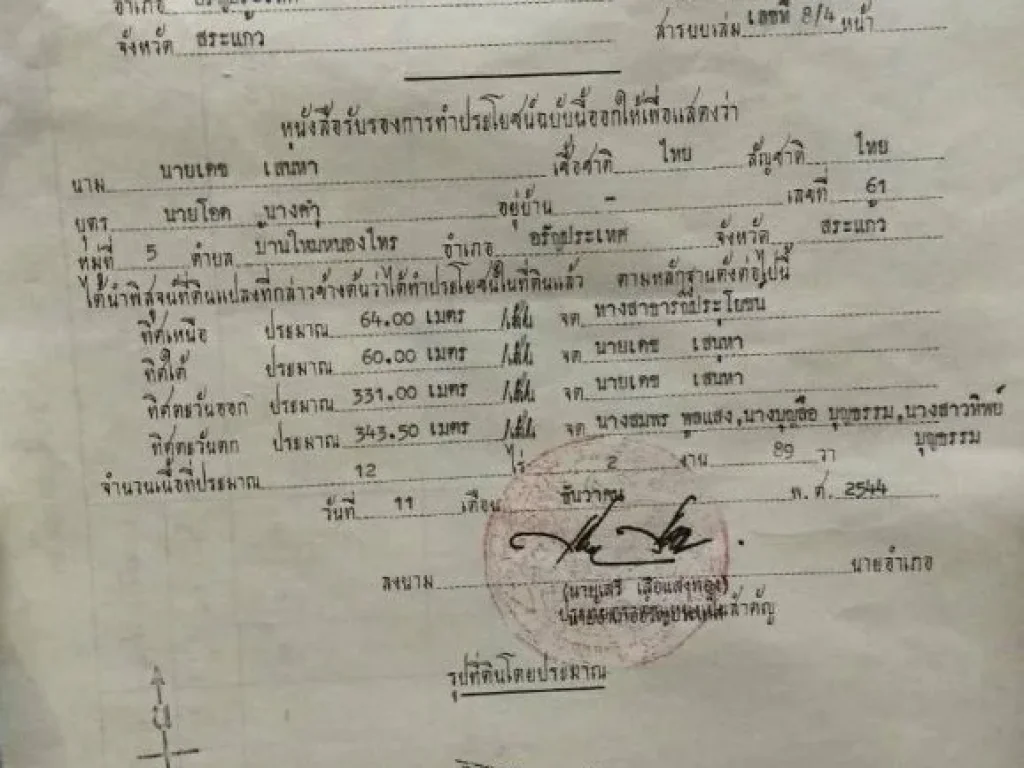 อำเภอ อรัญประเทศ
จังหวัด สระแก้ว สารบบเล่ม เลขที่ 8/4 หน้า
หนังสือรับรองการทำประโยชน์ฉบับนี้ออกให้เพื่อแสดงว่า
นาม นายเดช เสนหา เชื้อชาติ ไทย สัญชาติ ไทย
บุตร นายโฮด นางคำ อยู่บ้าน - เลขที่ 61
หมู่ที่ 5 ตำบล บ้านใหม่หนองไทร อำเภอ อรัญประเทศ จังหวัด สระแก้ว
ได้นำพิสูจน์ที่ดินแปลงที่กล่าวข้างต้นว่าได้ทำประโยชน์ในที่ดินแล้ว ตามหลักฐานดังต่อไปนี้
ทิศเหนือ ประมาณ 64.00 เมตร จด ทางสาธารณประโยชน์
ทิศใต้ ประมาณ 60.00 เมตร จด นายเดช เสนหา
ทิศตะวันออก ประมาณ 331.00 เมตร จด นายเดช เสนหา
ทิศตะวันตก ประมาณ 343.50 เมตร จด นางสมพร พูลแสง,นางบุญลือ บุญธรรม,นางสาวทิพย์
บุญธรรม
จำนวนเนื้อที่ประมาณ 12 ไร่ 2 งาน 89 วา
วันที่ 11 เดือน ธันวาคม พ.ศ. 2544
ลงนาม นายอำเภอ
(นายเสรี เสือแสงทอง)
รูปที่ดินโดยประมาณ
น